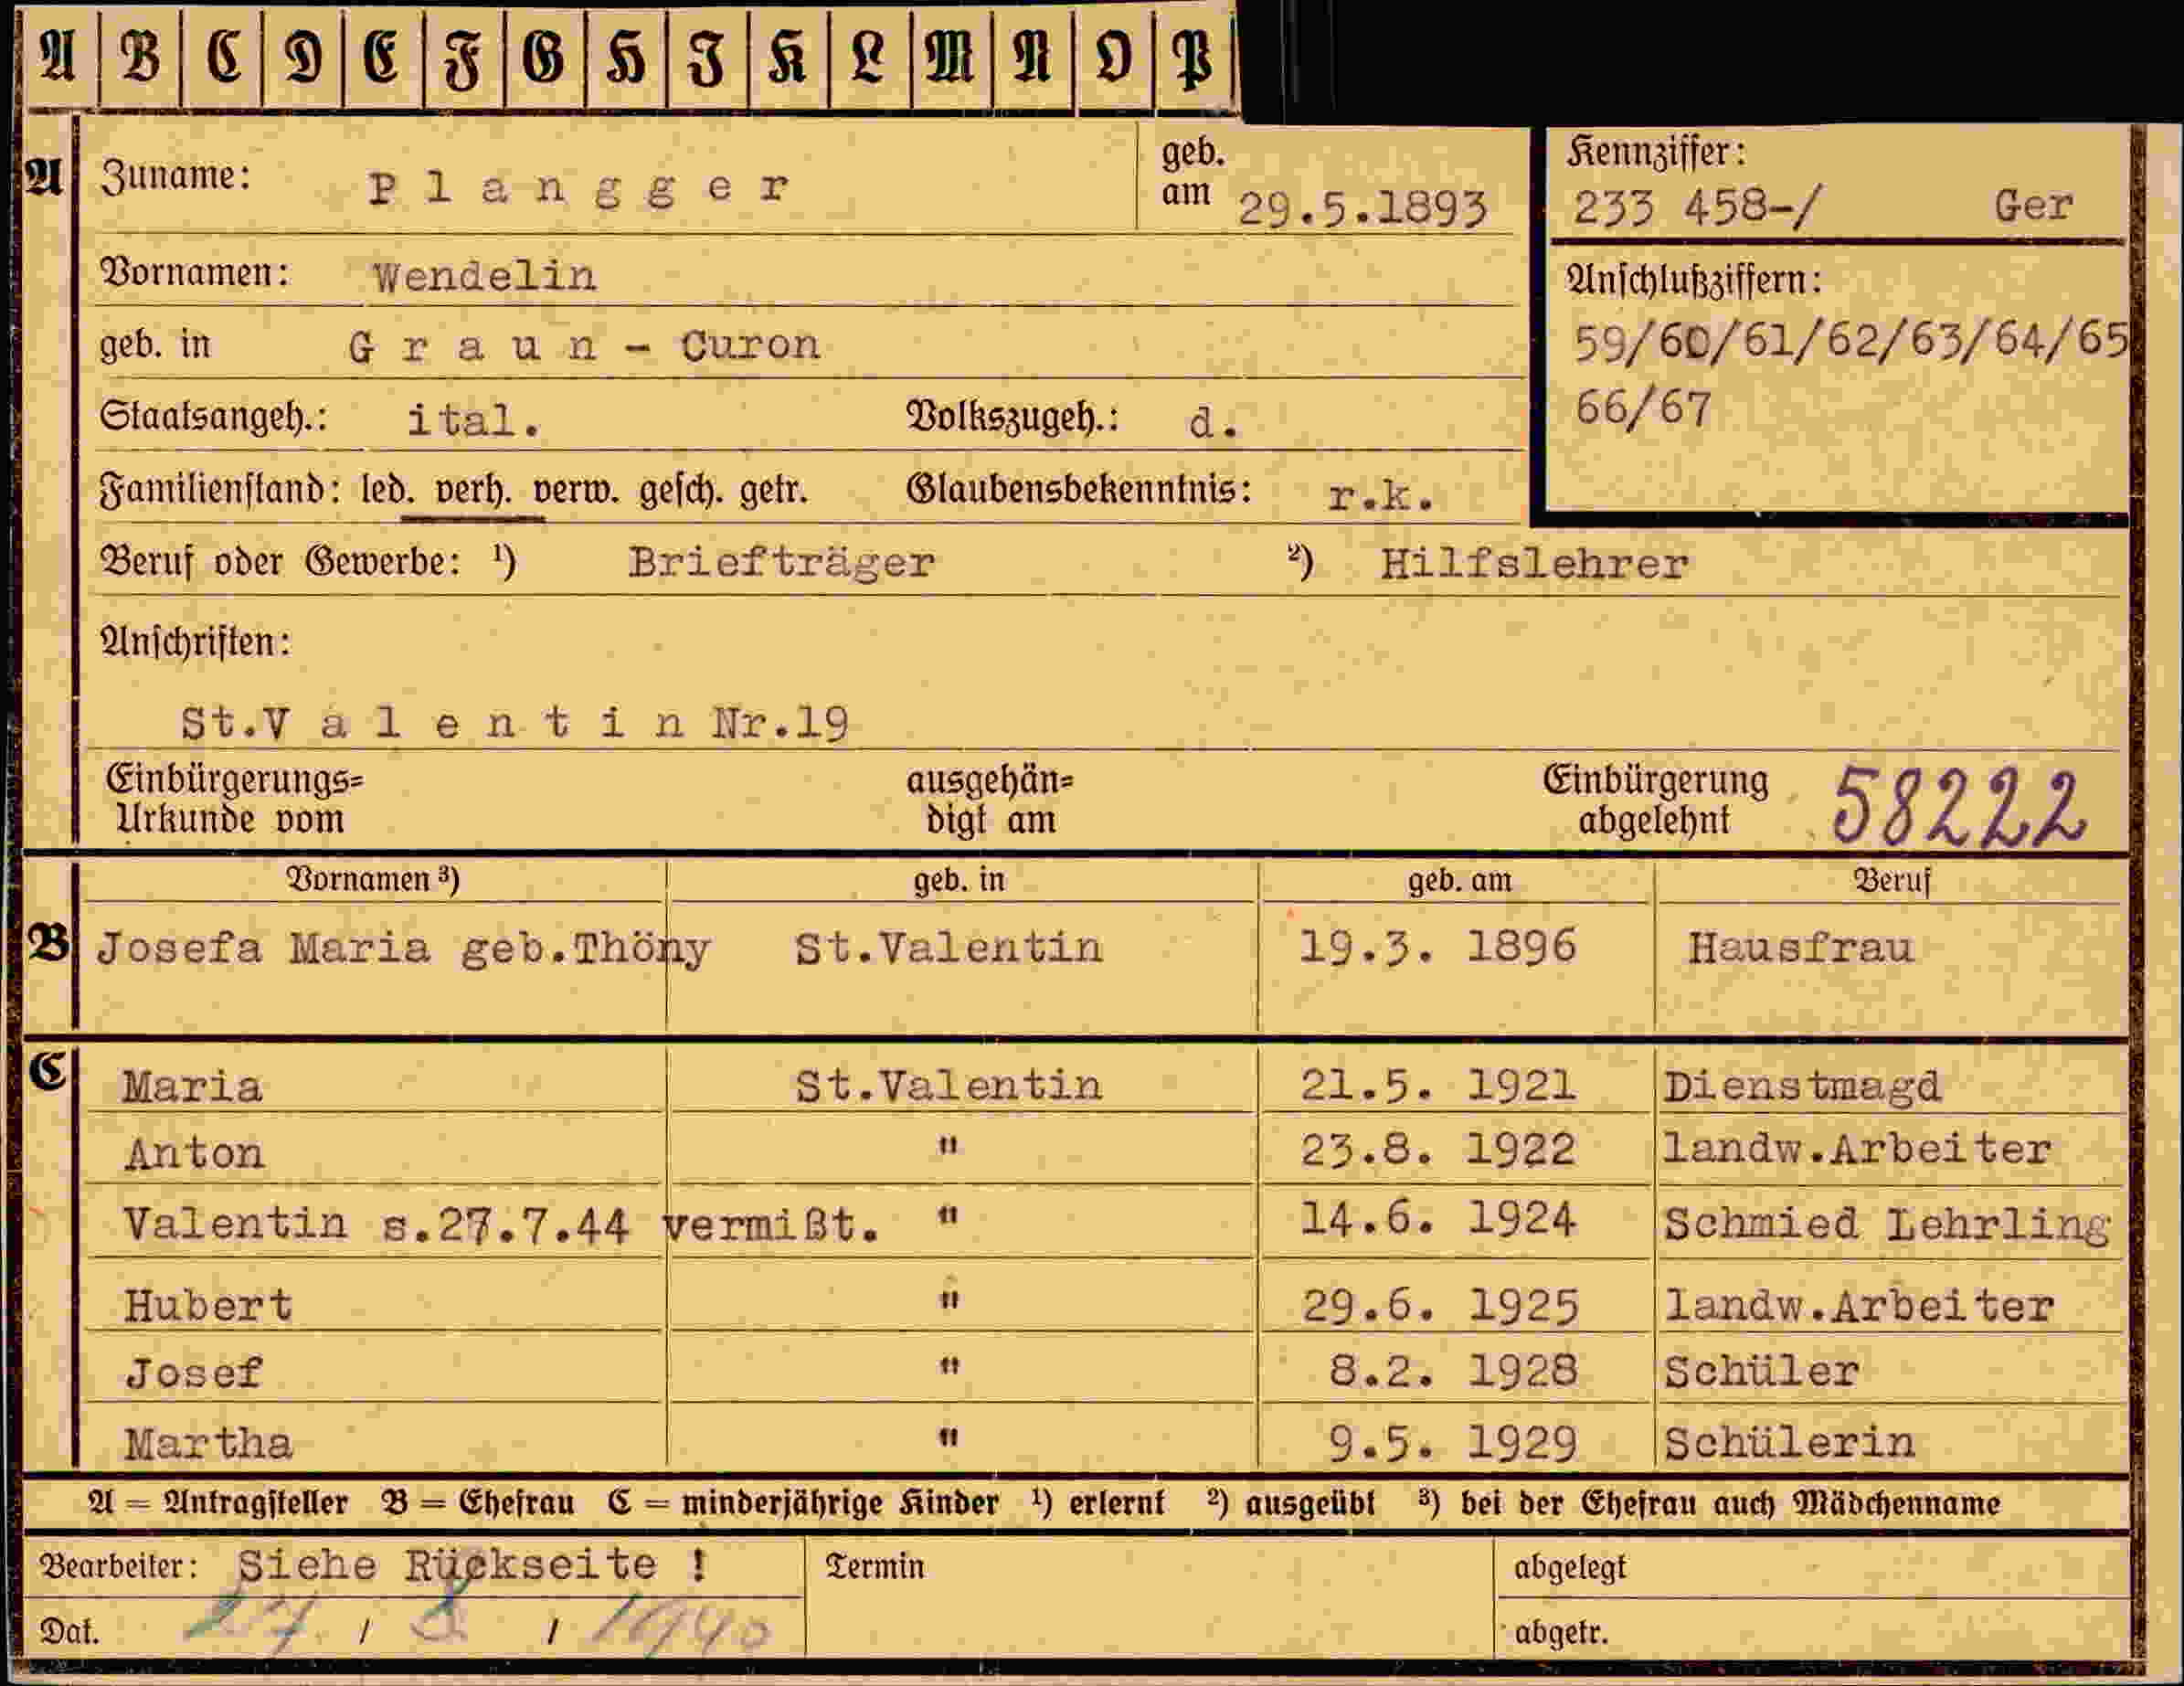 A B C D E F G H I K L M N O P
A Zuname: Plangger geb. am 29.5.1893
Kennziffer:
233 458-/ Ger
Vornamen: Wendelin
Anschlußziffern:
59/60/61/62/63/64/65
66/67
geb. in Graun - Curon
Staatsangeh.: ital. Volkszugeh.: d.
Familienstand: led. verh. verw. gesch. getr. Glaubensbekenntnis: r.k.
Beruf oder Gewerbe: ¹) Briefträger ²) Hilfslehrer
Anschriften:
St.Valentin Nr.19
Einbürgerungs= Urkunde vom ausgehän= digt am Einbürgerung abgelehnt 58222
Vornamen ³) geb. in geb. am Beruf
B Josefa Maria geb.Thöny St.Valentin 19.3. 1896 Hausfrau
C Maria St.Valentin 21.5. 1921 Dienstmagd
Anton " 23.8. 1922 landw.Arbeiter
Valentin s.27.7.44 vermißt. " 14.6. 1924 Schmied Lehrling
Hubert " 29.6. 1925 landw.Arbeiter
Josef " 8.2. 1928 Schüler
Martha " 9.5. 1929 Schülerin
A = Antragsteller B = Ehefrau C = minderjährige Kinder ¹) erlernt ²) ausgeübt ³) bei der Ehefrau auch Mädchenname
Bearbeiter: Siehe Rückseite ! Termin abgelegt
Dat. 27. / 8 / 1940 abgetr.